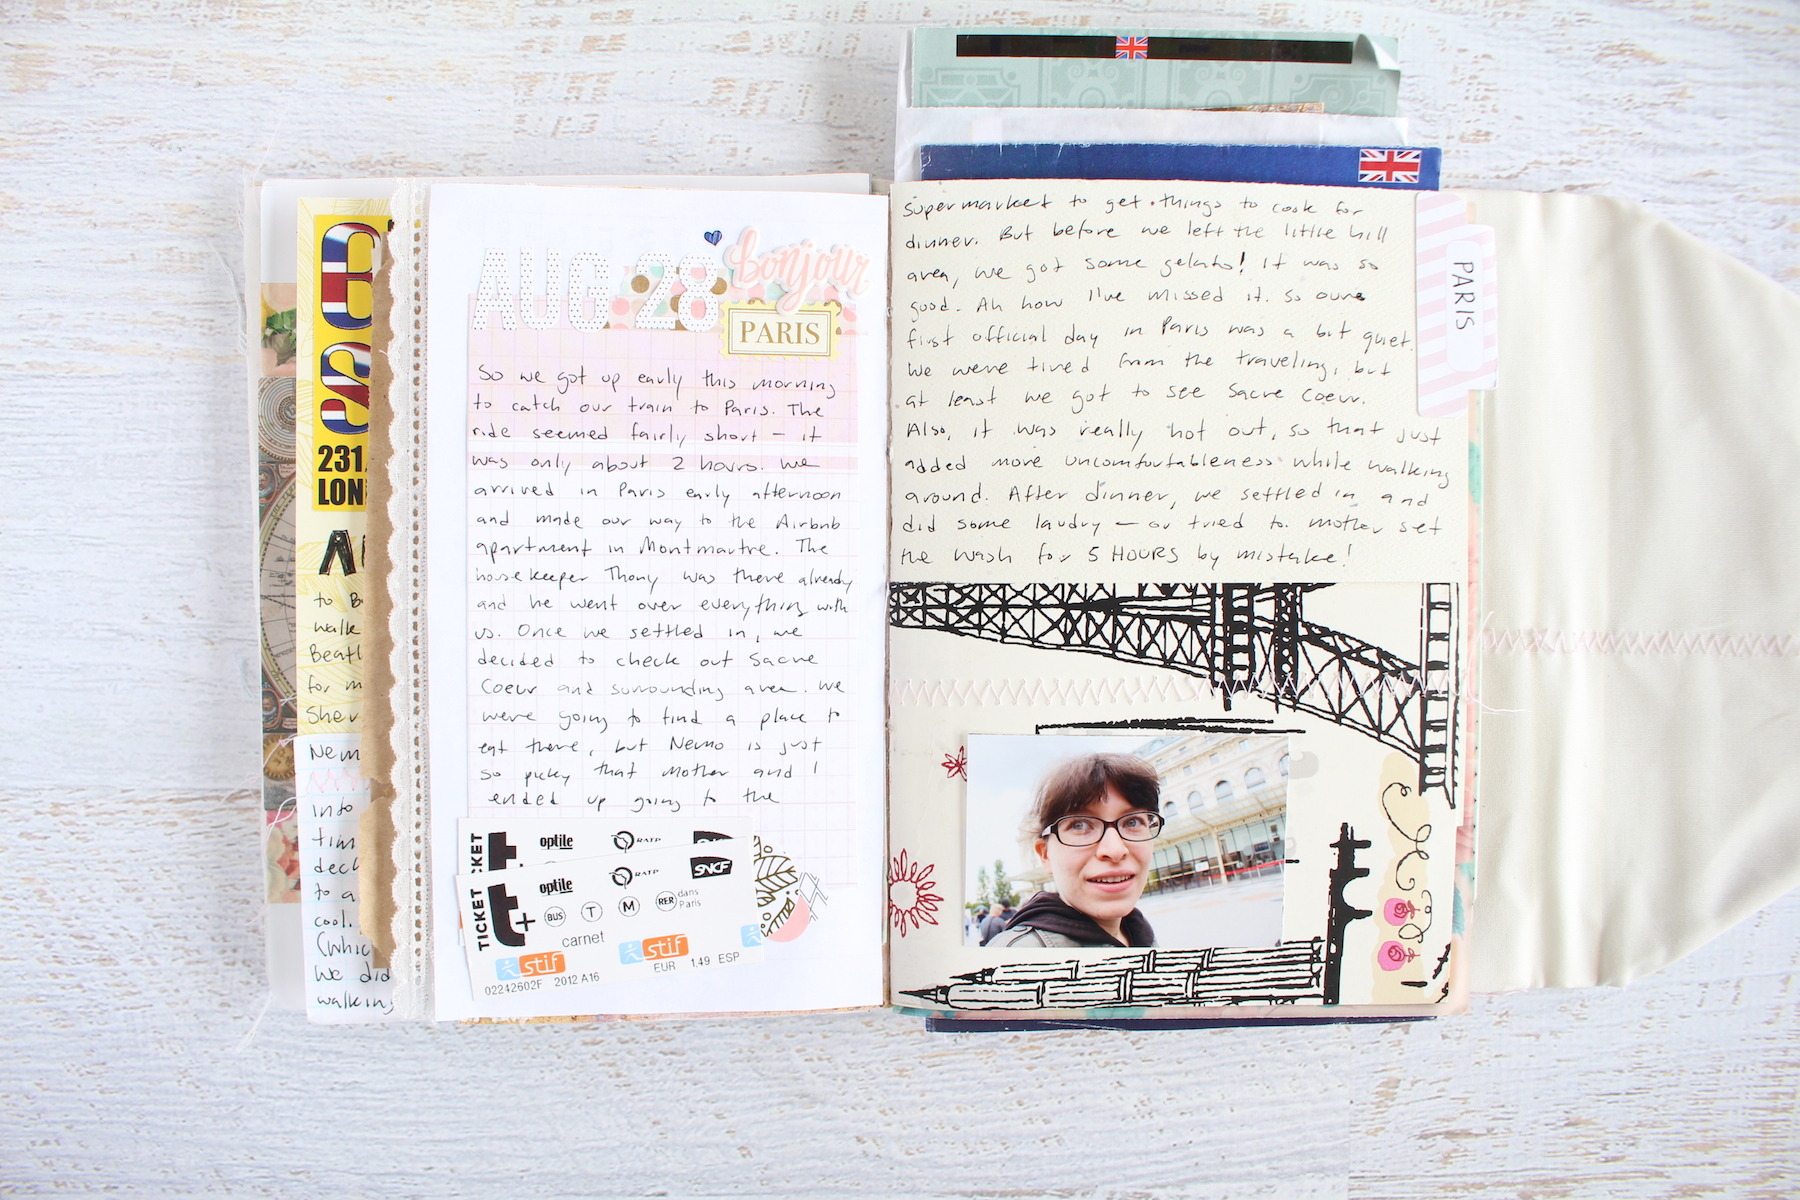 231
LON
A
to B
walk
Beatl
for m
Sher
Nem
into
tim
deck
to a
cool.
(whic
We did
walking
AUG 28
bonjour
PARIS
So we got up early this morning
to catch our train to Paris. The
ride seemed fairly short – it
was only about 2 hours. We
arrived in Paris early afternoon
and made our way to the Airbnb
apartment in Montmartre. The
housekeeper Thony was there already
and he went over everything with
us. Once we settled in, we
decided to check out Sacre
Coeur and surrounding area. We
were going to find a place to
eat there, but Nemo is just
so picky that mother and I
ended up going to the
TICKET
optile
RATP
TICKET t+
optile
RATP
SNCF
BUS
T
M
RER
dans
Paris
carnet
stif
stif
EUR 1.49 ESP
02242602F 2012 A16
supermarket to get things to cook for
dinner. But before we left the little hill
area, we got some gelato! It was so
good. Ah how I've missed it. So our
first official day in Paris was a bit quiet.
We were tired from the traveling, but
at least we got to see Sacre Coeur.
Also, it was really hot out, so that just
added more uncomfortableness while walking
around. After dinner, we settled in and
did some laudry – or tried to. Mother set
the wash for 5 HOURS by mistake!
PARIS